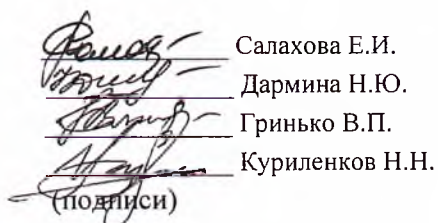 Салахова Е.И.
Дармина Н.Ю.
Гринько В.П.
Куриленков Н.Н.
(подписи)